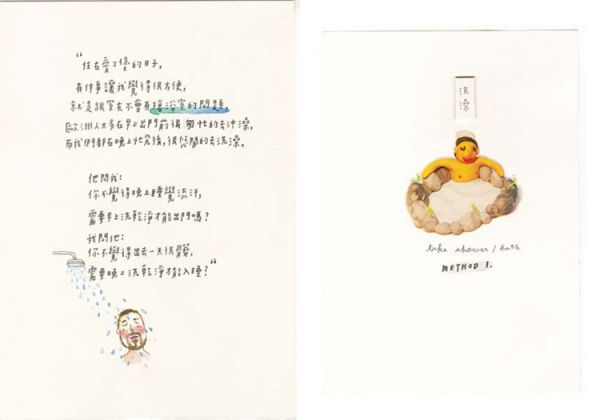 “住在愛丁堡的日子，
有件事讓我覺得很方便，
就是跟室友不會有搶浴室的問題，
歐洲人大多在早上出門前很匆忙的去沖澡，
而我們都在晚上忙完後，很悠閒的去洗澡。
他問我：
你不覺得晚上睡覺流汗，
需要早上洗乾淨才能出門嗎？
我問他：
你不覺得出去一天很髒，
需要晚上洗乾淨才能入睡？”
洗澡
take shower / bath
METHOD 1.